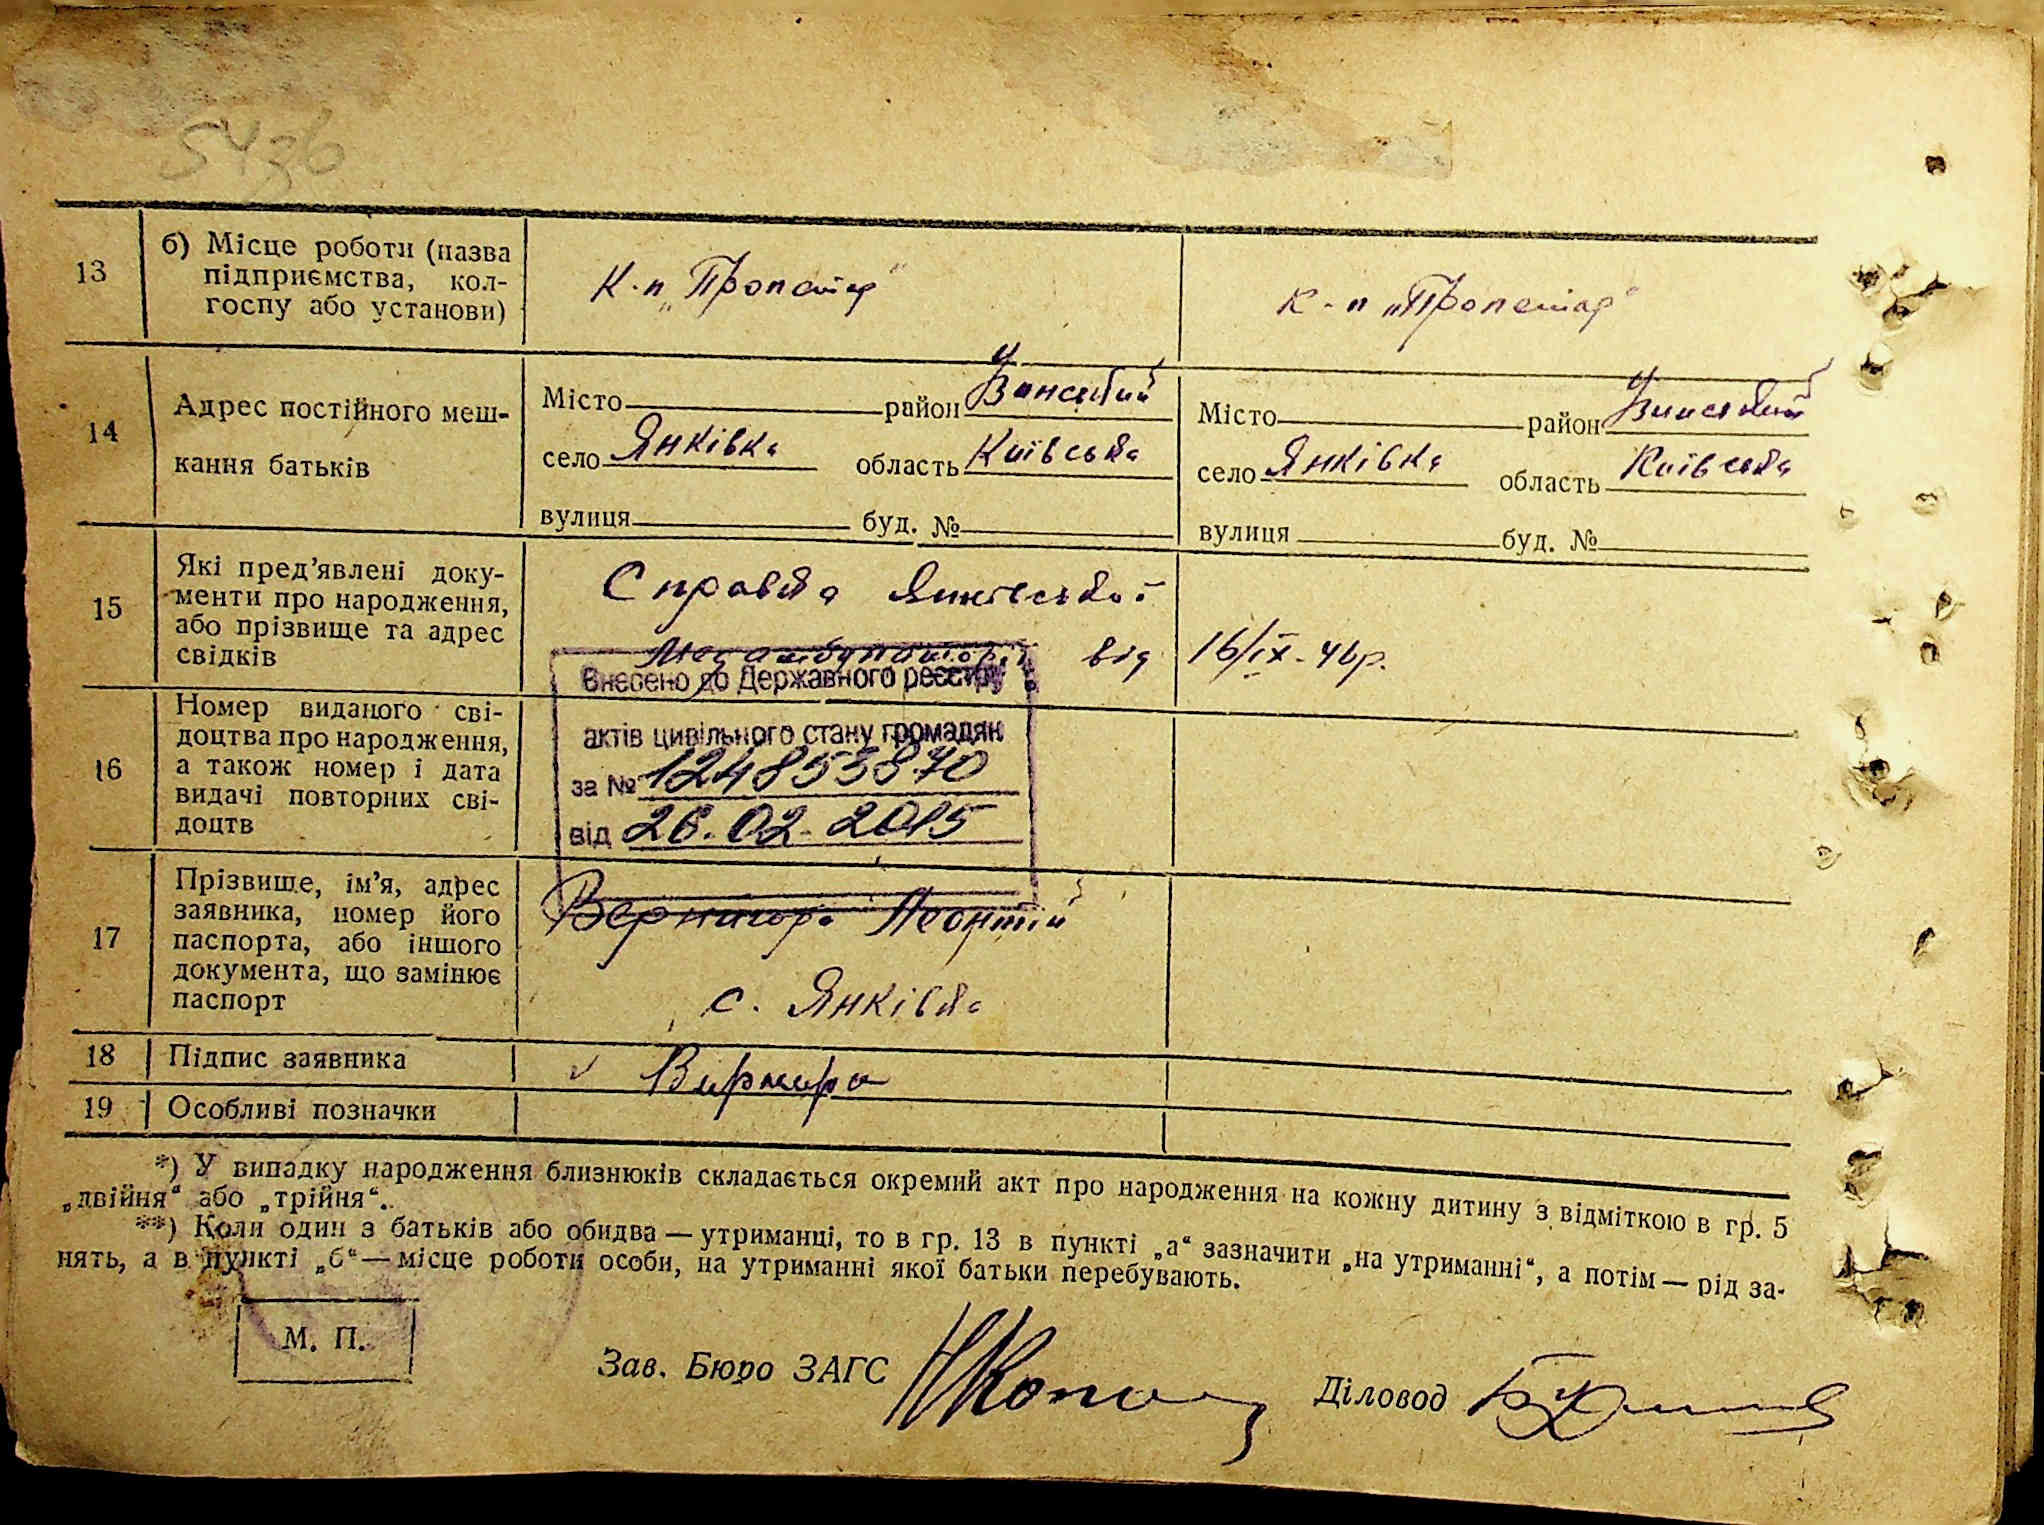 13
б) Місце роботи (назва
підприємства, кол-
госпу або установи)
К-п „Пролетар“
к-п „Пролетар“
14
Адрес постійного меш-
кання батьків
Місто район
село Янківка область Київська
вулиця буд. №
Місто район
село Янківка область Київська
вулиця буд. №
15
Які пред’явлені доку-
менти про народження,
або прізвище та адрес
свідків
Справка Янківської
Медамбулаторії від 16/ІХ-46р.
Внесено до Державного реєстру
актів цивільного стану громадян
за № 124853870
від 26.02.2015
16
Номер виданого сві-
доцтва про народження,
а також номер і дата
видачі повторних сві-
доцтв
17
Прізвище, ім’я, адрес
заявника, номер його
паспорта, або іншого
документа, що замінює
паспорт
Вернигора Леонтій
с. Янківка
18
Підпис заявника
19
Особливі позначки
*) У випадку народження близнюків складається окремий акт про народження на кожну дитину з відміткою в гр. 5
„двійня“ або „трійня“.
**) Коли один з батьків або обидва — утриманці, то в гр. 13 в пункті „а“ зазначити „на утриманні“, а потім — рід за-
нять, а в пункті „б“ — місце роботи особи, на утриманні якої батьки перебувають.
М. П.
Зав. Бюро ЗАГС
Діловод